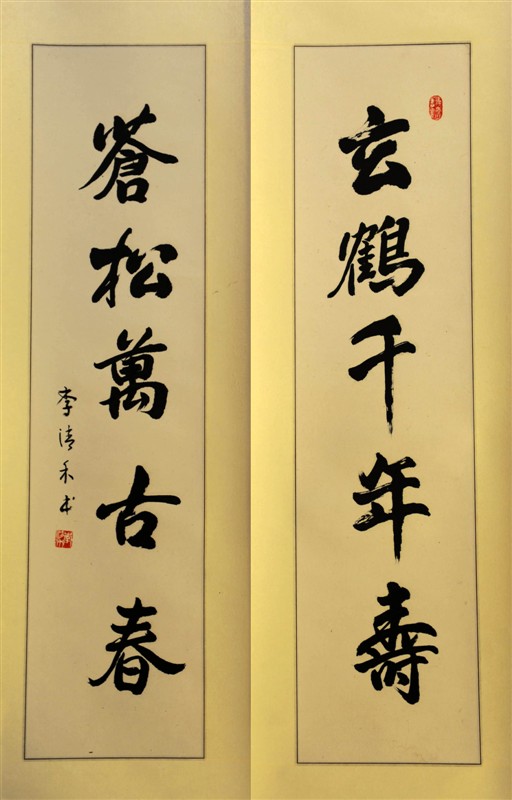 玄鶴千年壽
蒼松萬古春
李清禾书